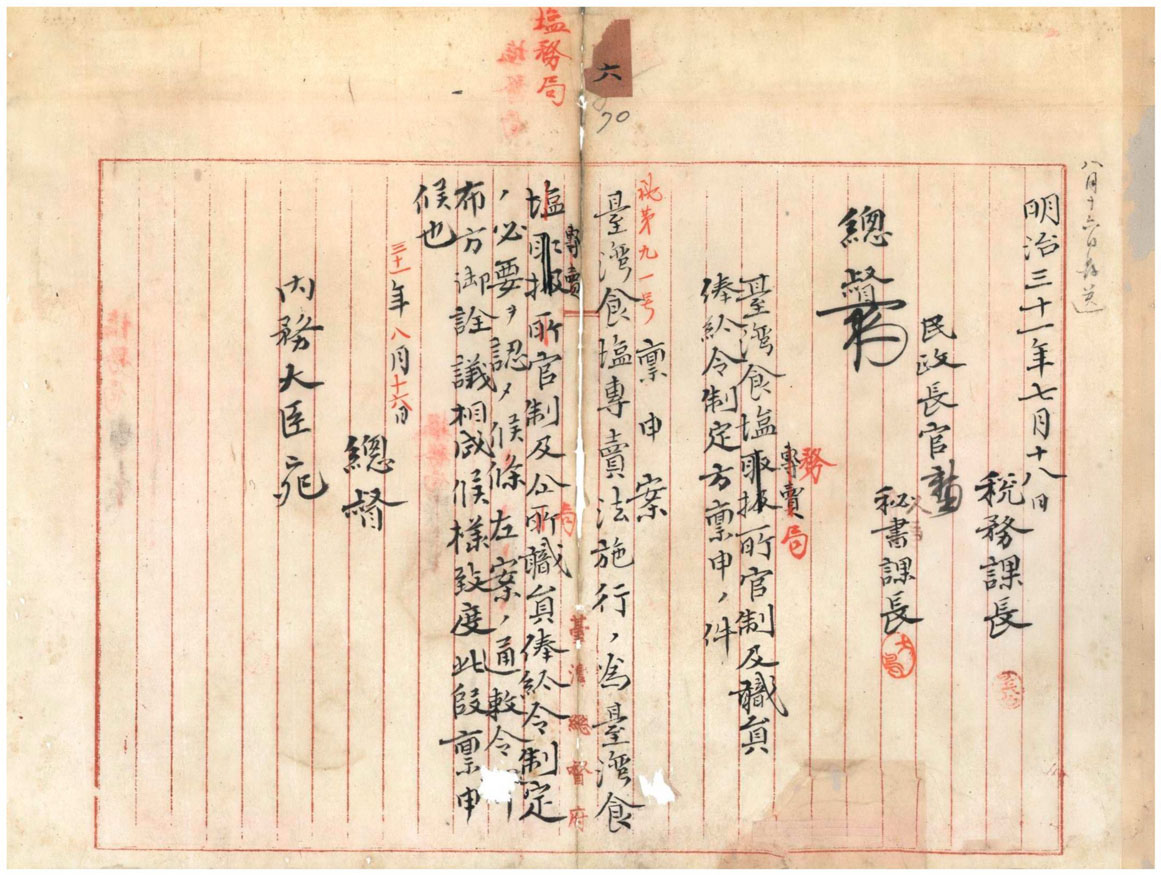 八月十六日发送
明治三十一年七月十八日
税務課長
民政長官
秘書課長
總督
務
專賣局
臺灣食塩取扱所官制及職員
俸給令制定方稟申ノ件
秘第九一号
稟申案
臺灣食塩專賣法施行ノ為臺灣食
專賣
塩取扱所官制及仝所職員俸給令制定
局
ノ必要ヲ認メ候條左案ノ通敕令
布方御詮議相成候様致度此段稟申
候也
三十一年八月十六日
總督
内務大臣宛
塩務局
六
70
臺灣總督府